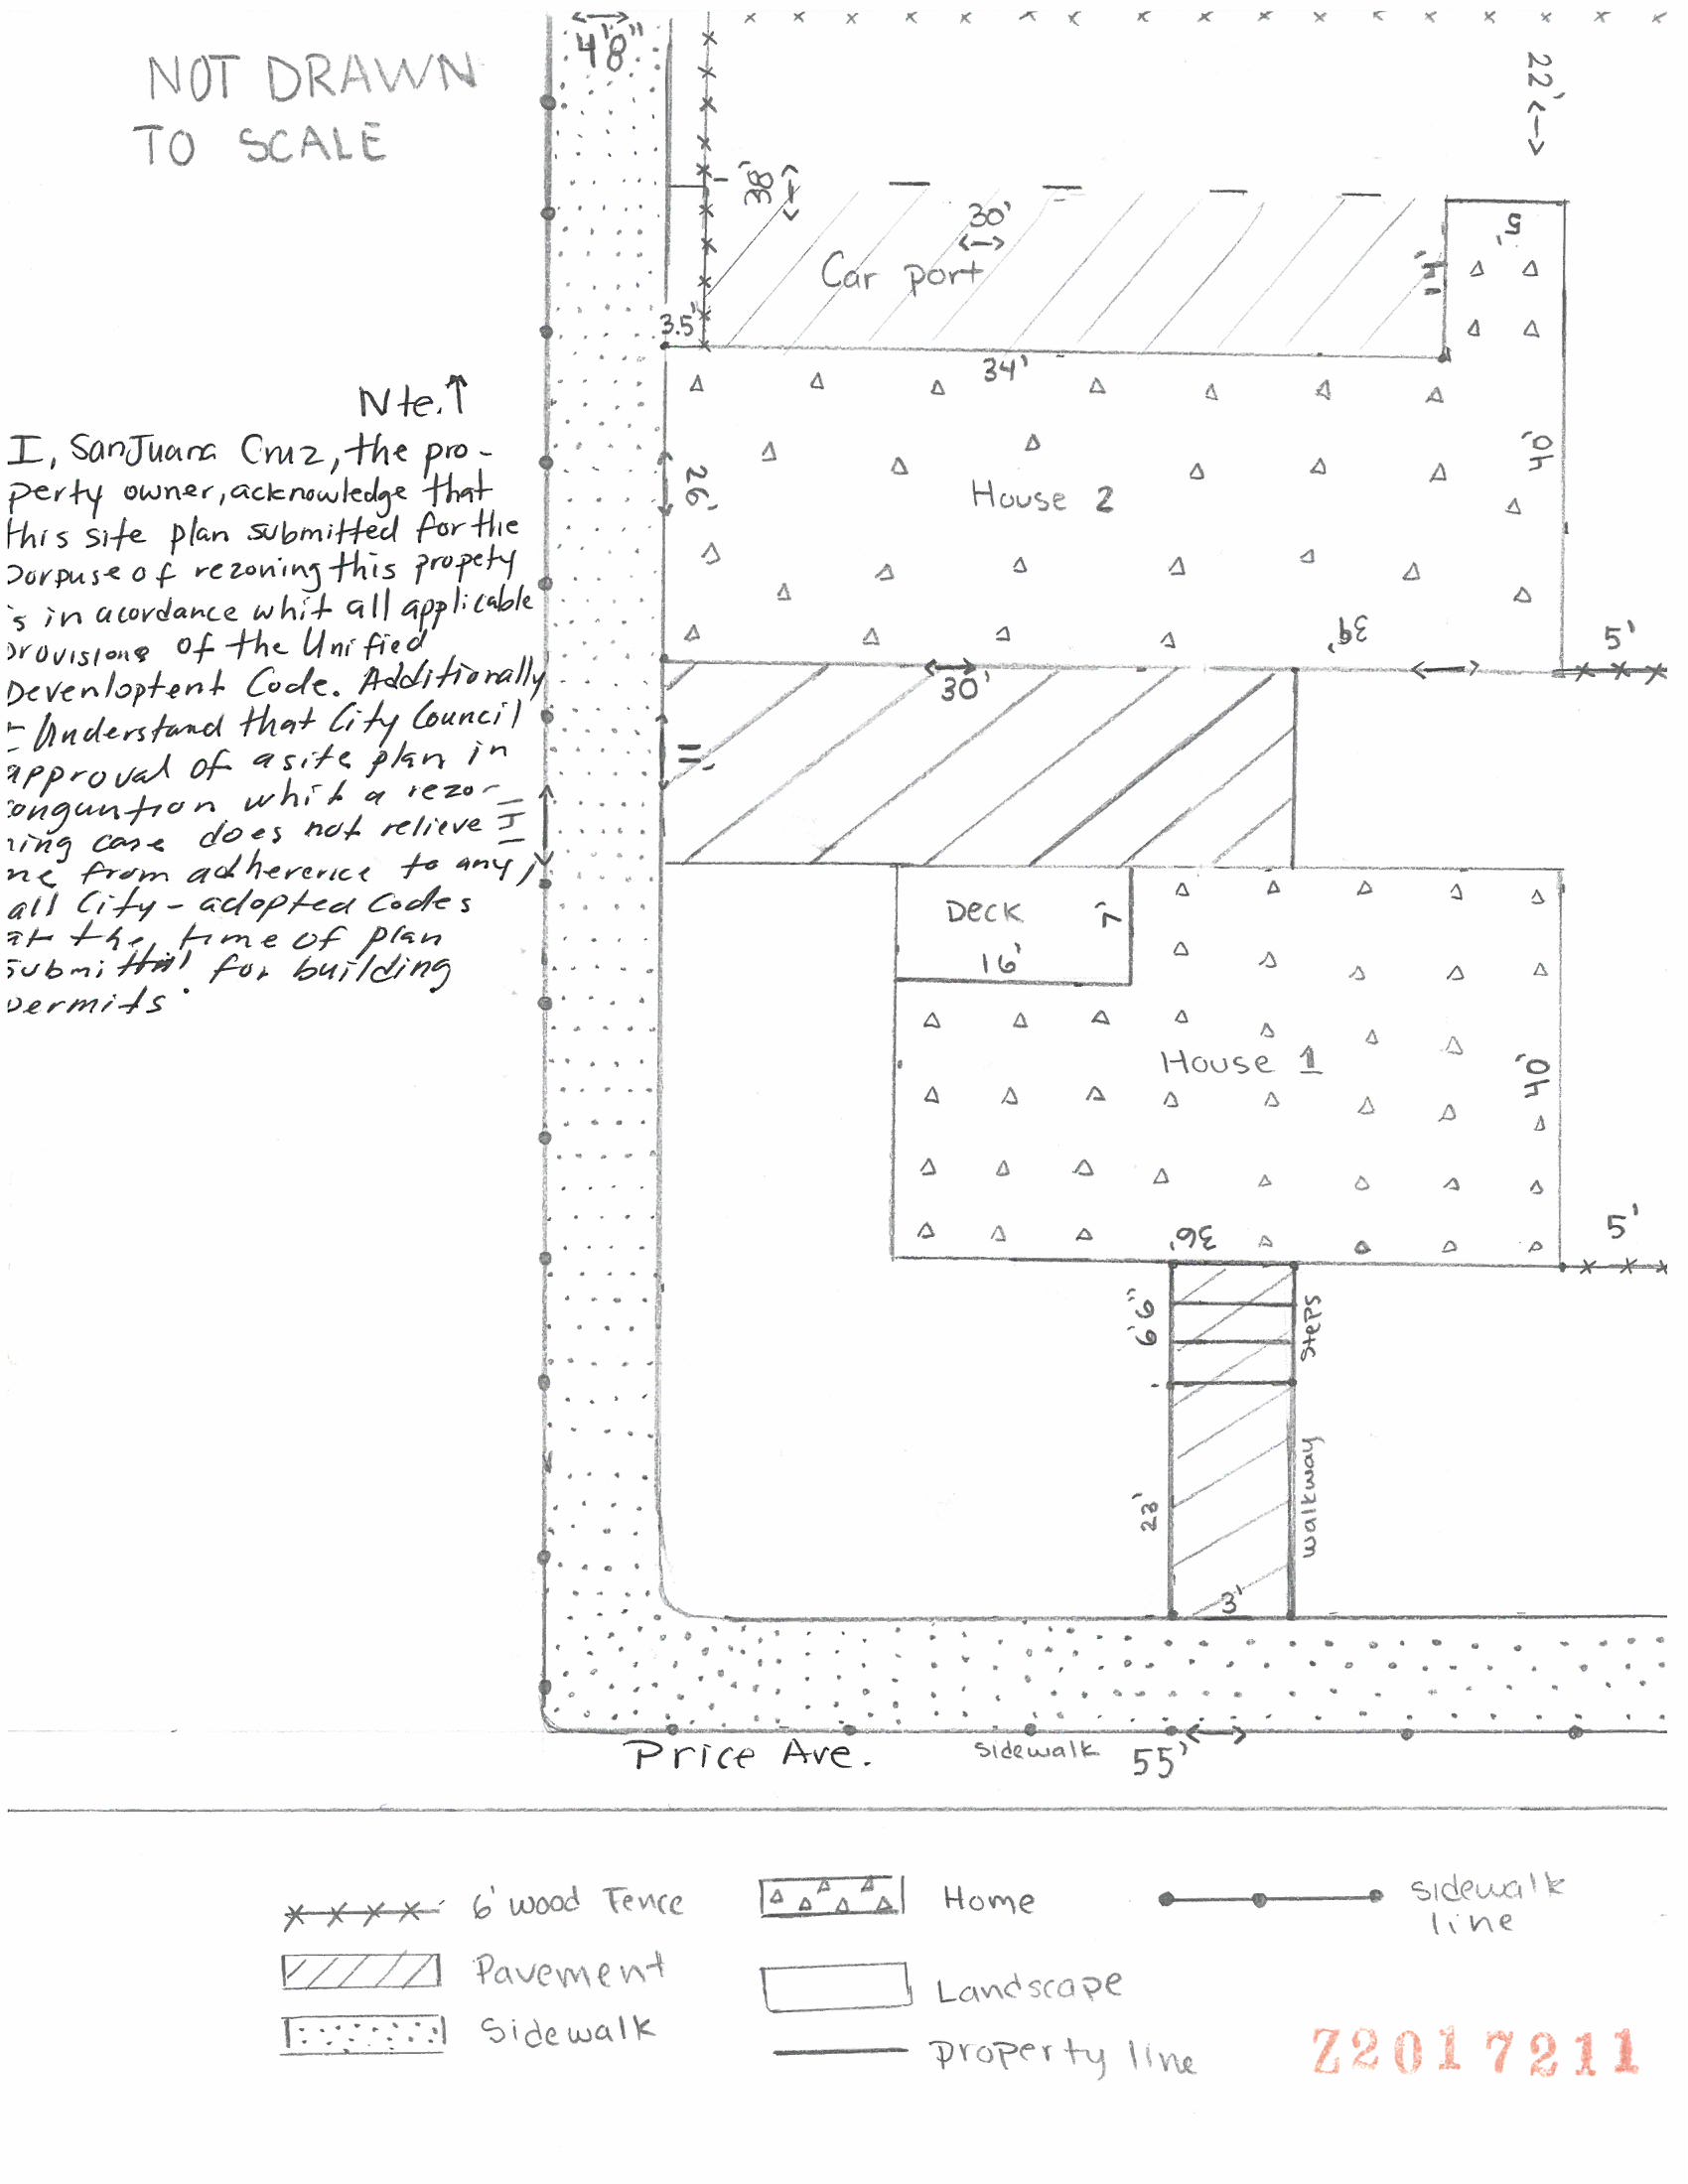 4'8"
NOT DRAWN
TO SCALE
22'
38'
30'
Car port
5'
14'
3.5'
34'
Nte.↑
I, SanJuana Cruz, the pro-
perty owner, acknowledge that
this site plan submitted for the
porpuse of rezoning this propety
is in acordance whit all applicable
provisions of the Unified
Devenloptent Code. Additionally
I Understand that City Council
approval of a site plan in
conguntion whit a rezo-
ning case does not relieve
me from adherence to any,
all City-adopted Codes
at the time of plan
submittal for building
permits.
26'
House 2
40'
39'
5'
30'
11'
11'
Deck
7'
16'
House 1
40'
36'
5'
6'6"
Steps
23'
walkway
3'
Price Ave.
Sidewalk
55'
6' wood Fence
Home
sidewalk
line
Pavement
Landscape
Sidewalk
property line
Z2017211